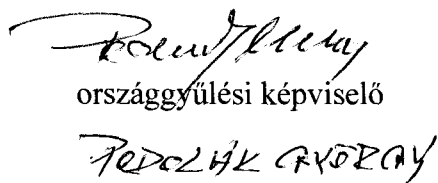 országgyűlési képviselő
PODOLÁK GYÖRGY